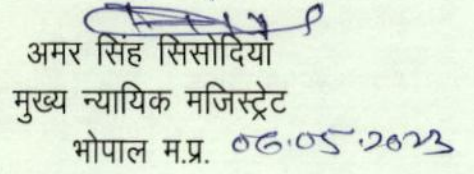 अमर सिंह सिसोदिया
मुख्य न्यायिक मजिस्ट्रेट
भोपाल म.प्र. 06.05.2023